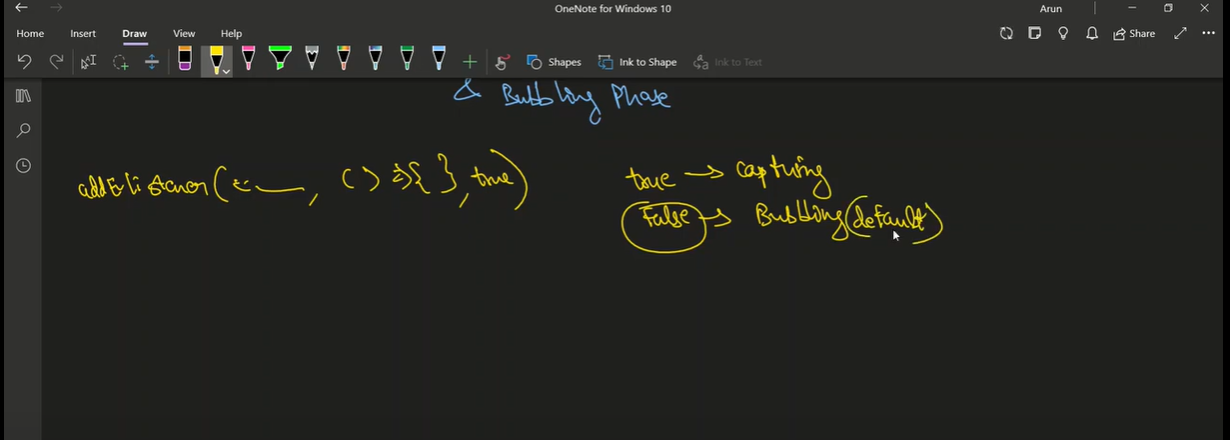 OneNote for Windows 10
Arun
Home Insert Draw View Help
Share
Shapes Ink to Shape Ink to Text
& Bubbling Phase
addEvListener( " , ( ) => { } , true)
true → capturing
False → Bubbling (default)